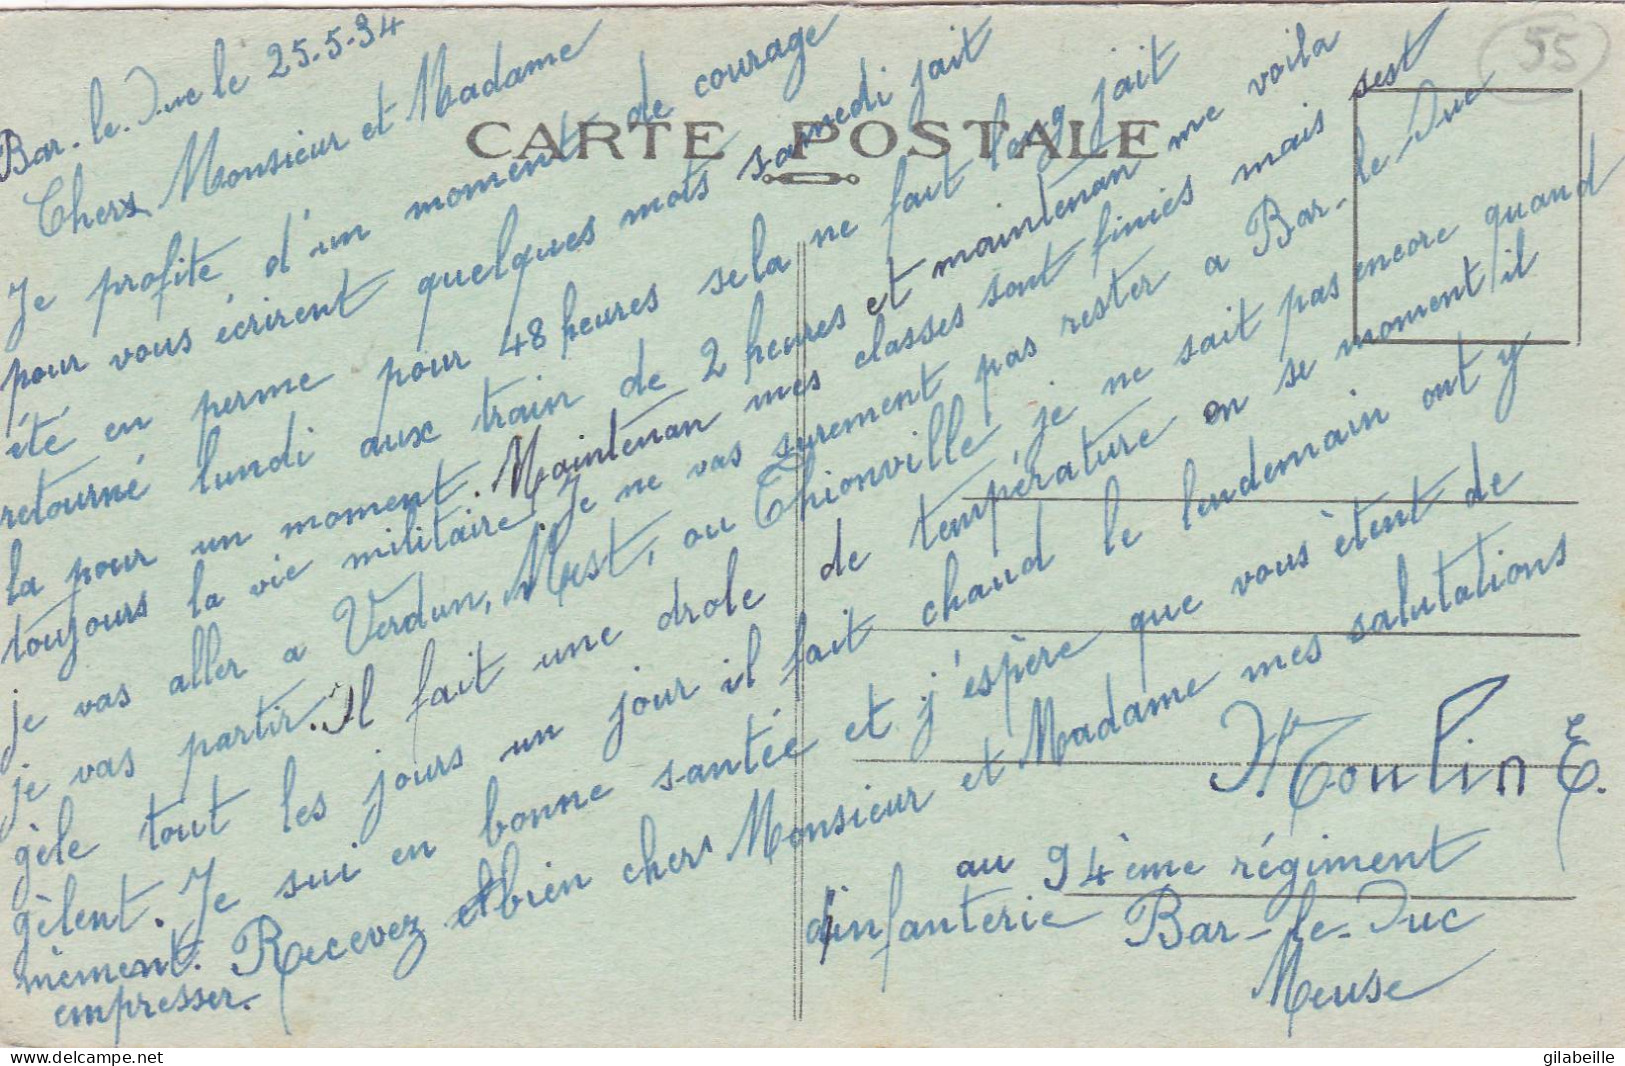 Bar-le-Duc le 25-5-34
Chers Monsieur et Madame
Je profite d'un moment de courage
pour vous écrirent quelques mots samedi jait
été en perme pour 48 heures sela ne fait long jait
retourné lundi aux train de 2 heures et maintenan me voila
la pour un moment. Maintenan mes classes sont finies mais sest
toujours la vie militaire. Je ne vas surement pas rester a Bar-le Duc
je vas aller a Verdun, Mest, ou Thionville je ne sait pas encore quand
je vas partir. Il fait une drole de température en se moment il
gèle tout les jours un jour il fait chaud le lendemain ont y
gèlent. Je sui en bonne santée et j'éspère que vous ètent de
mement. Recevez bien chers Monsieur et Madame mes salutations
empresser.
Moulin E.
au 94ème régiment
d'infanterie Bar-le-Duc
Meuse
CARTE POSTALE
55
www.delcampe.net
gilabeille